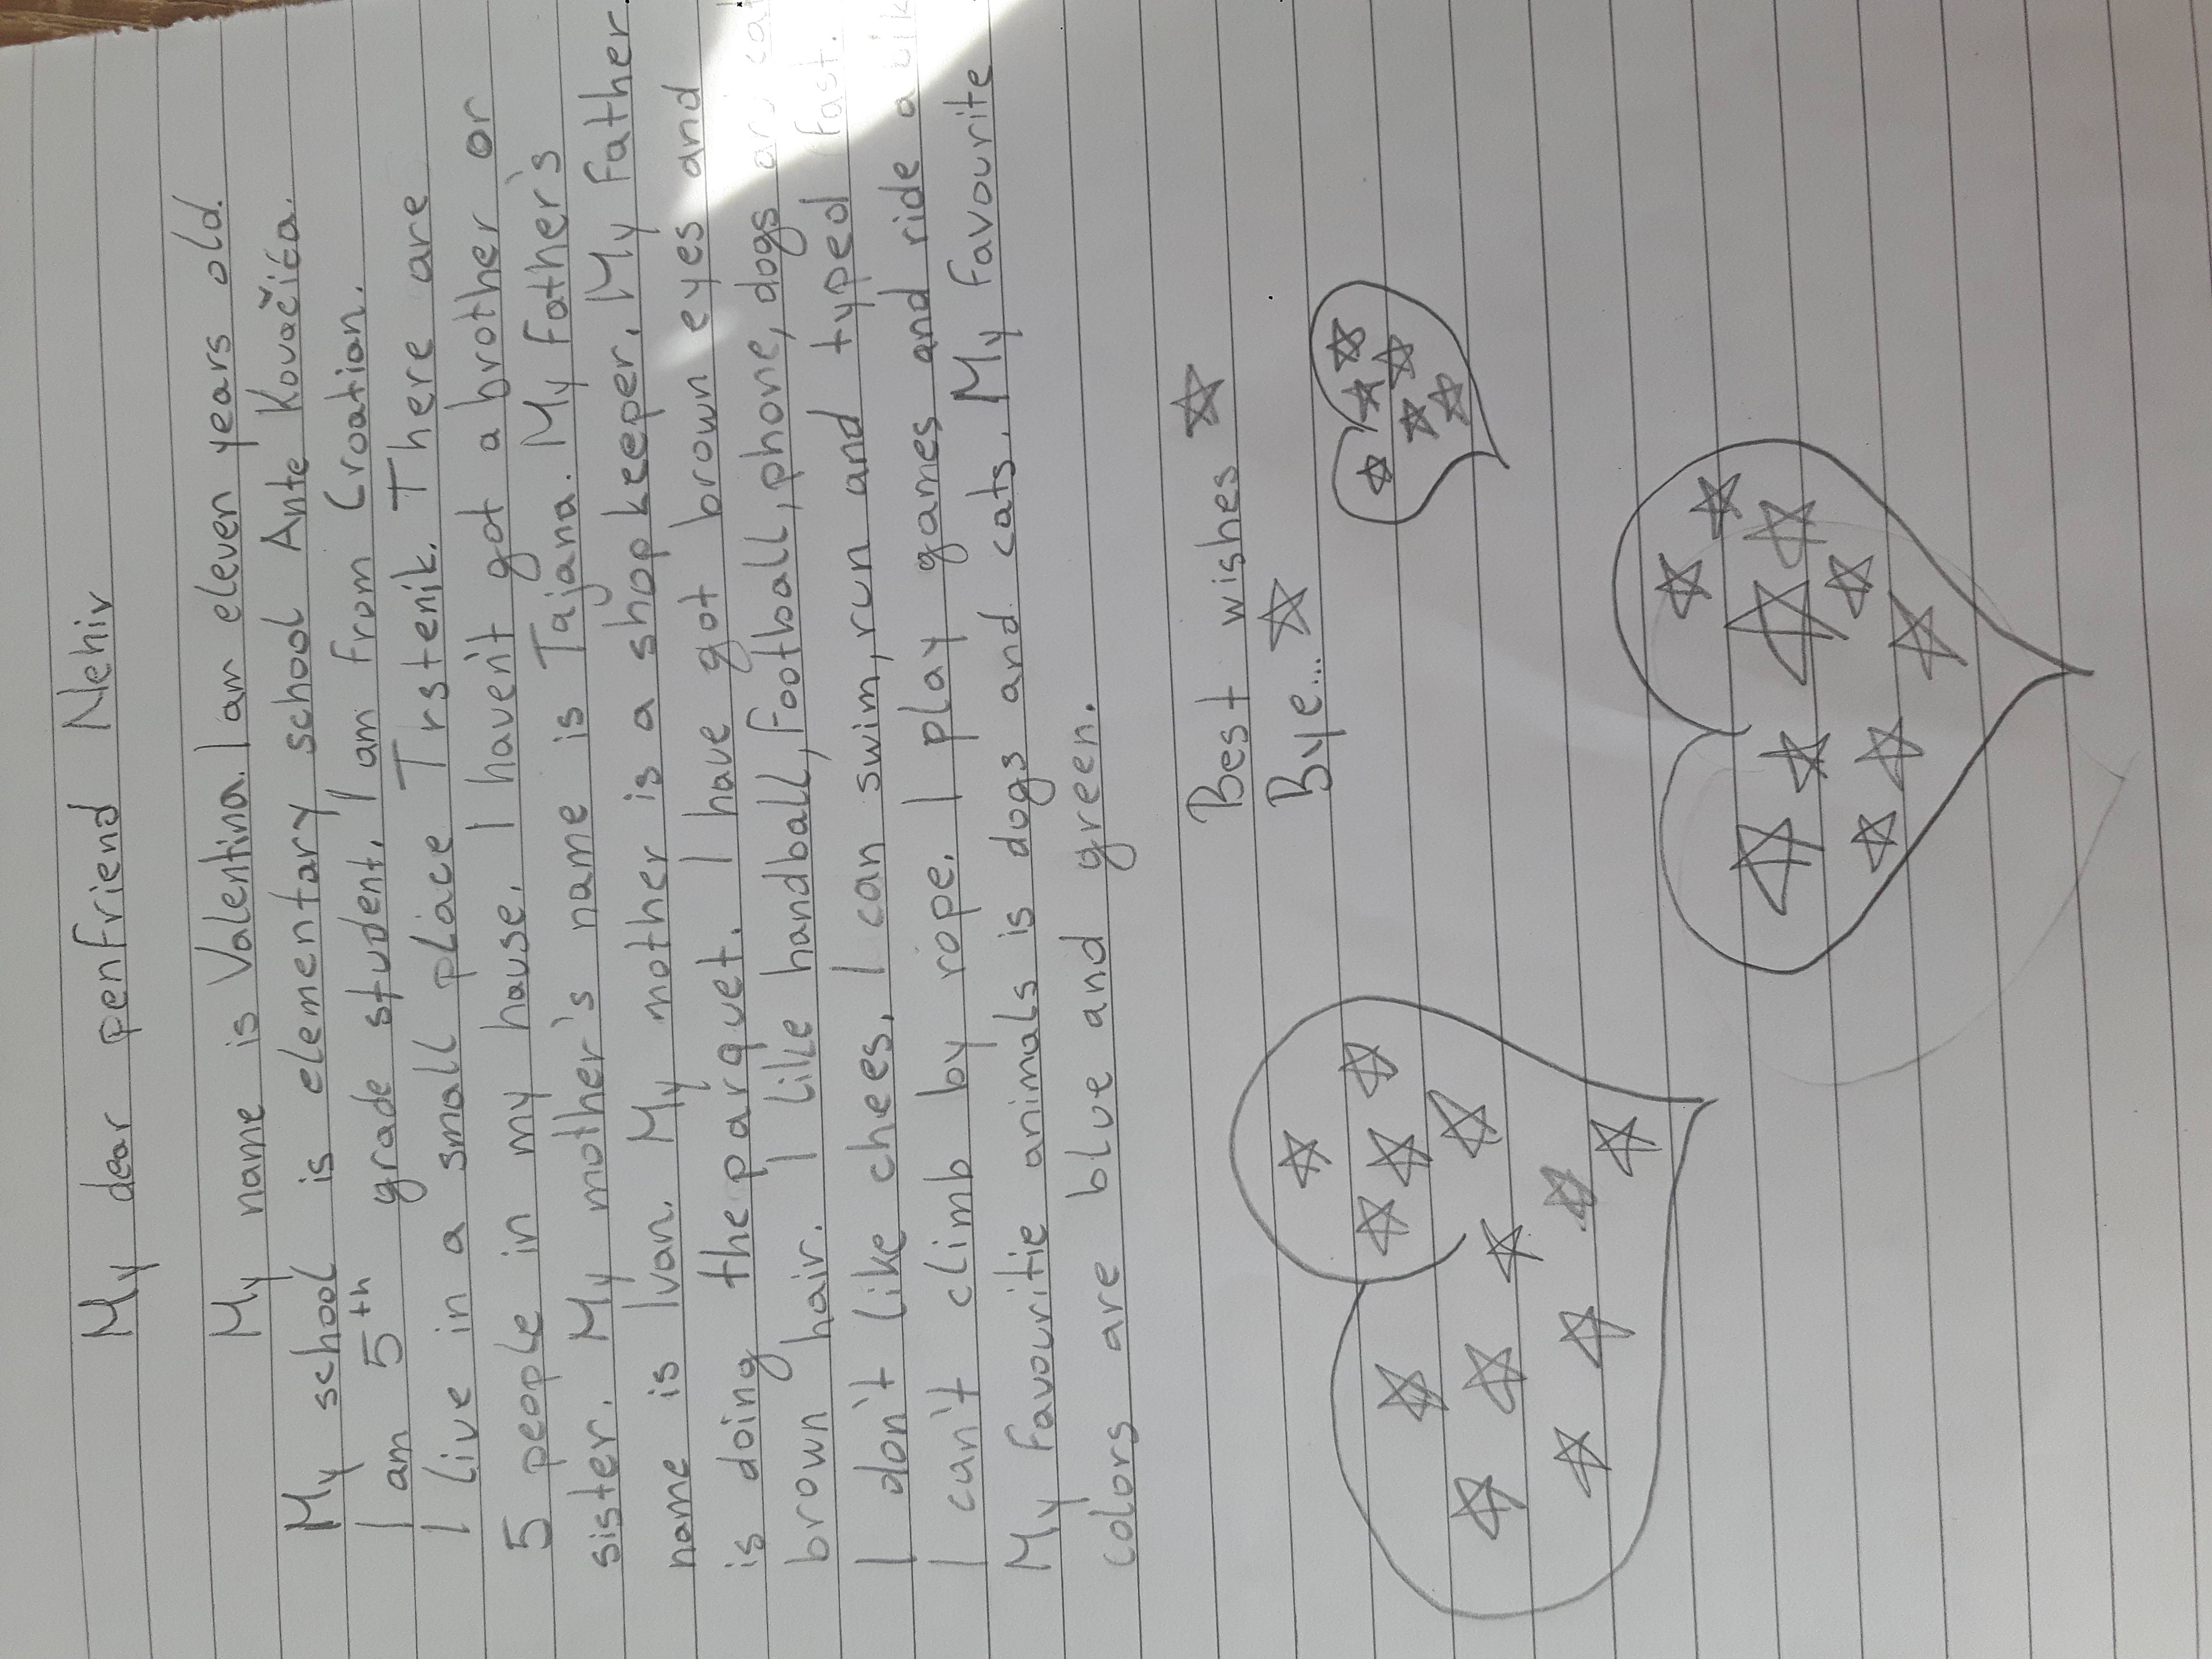 My dear penfriend Nehir
My name is Valentina. I am eleven years old.
My school is elementary school Ante Kovačića.
I am 5th grade student. I am from Croatian.
I live in a small place Trstenik. There are
5 people in my hause. I haven't got a brother or
sister. My mother's name is Tajana. My father's
name is Ivan. My mother is a shopkeeper. My father
is doing the parquet. I have got brown eyes and
brown hair. I like handball, football, phone, dogs and cat
I don't like chees. I can swim, run and typed fast.
I can't climb by rope. I play games and ride a
My favouritie animals is dogs and cats. My favourite
colors are blue and green.
Best wishes
Bye...